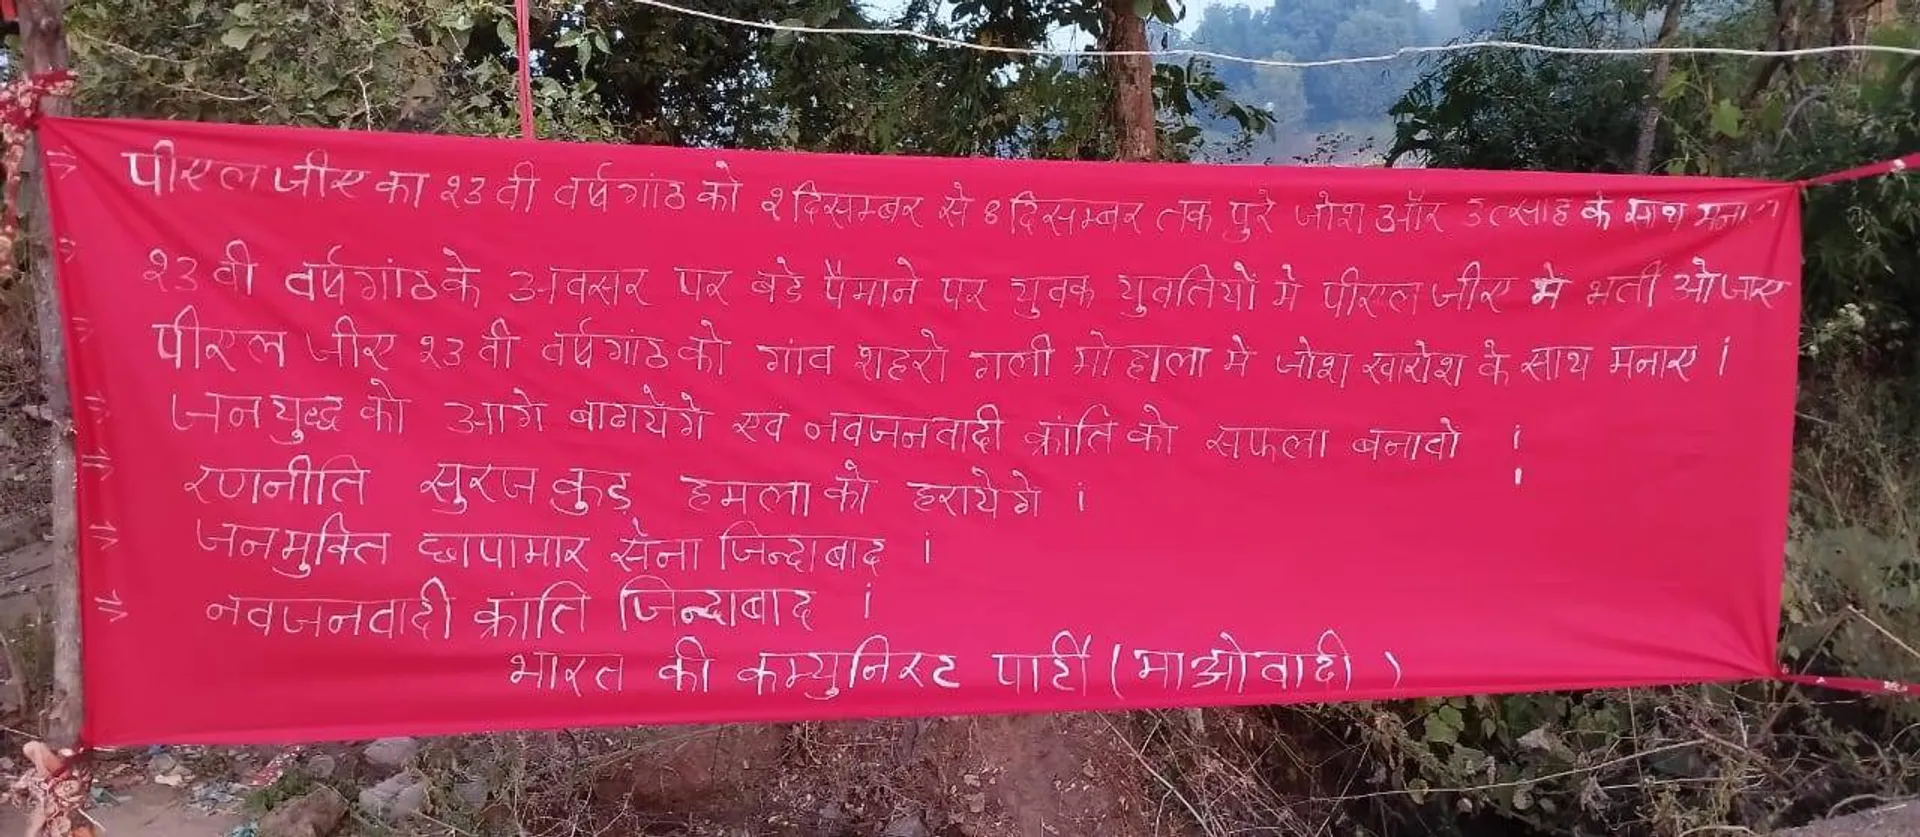 ⇒ पीएलजीए का २३ वी वर्षगांठ को २ दिसम्बर से ८ दिसम्बर तक पुरे जोश और उत्साह के साथ
⇒ २३ वी वर्षगांठ के अवसर पर बडे पैमाने पर युवक युवतियों मे पीएलजीए मे भर्ती
⇒ पीएल जीए २३ वी वर्षगांठ को गांव शहरो गली मोहाला मे जोश खारोश के साथ मनाए ।
⇒ जनयुध्द को आगे बाढायेंगे एवं नवजनवादी क्रांति को सफला बनावो !
⇒ रणनीति सुरजकुड़ हमला को हरायेगे ।
⇒ जनमुक्ति छापामार सेना जिन्दाबाद ।
⇒ नवजनवादी क्रांति जिन्दाबाद ।
भारत की कम्युनिस्ट पार्टी (माओवादी)